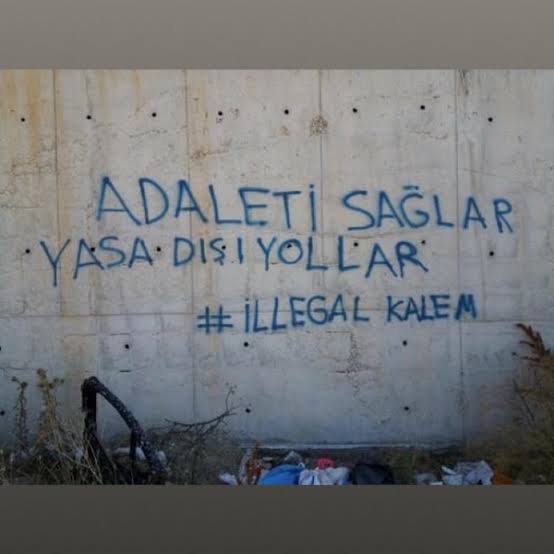 ADALETİ SAĞLAR
YASA DIŞI YOLLAR
# İLLEGAL KALEM